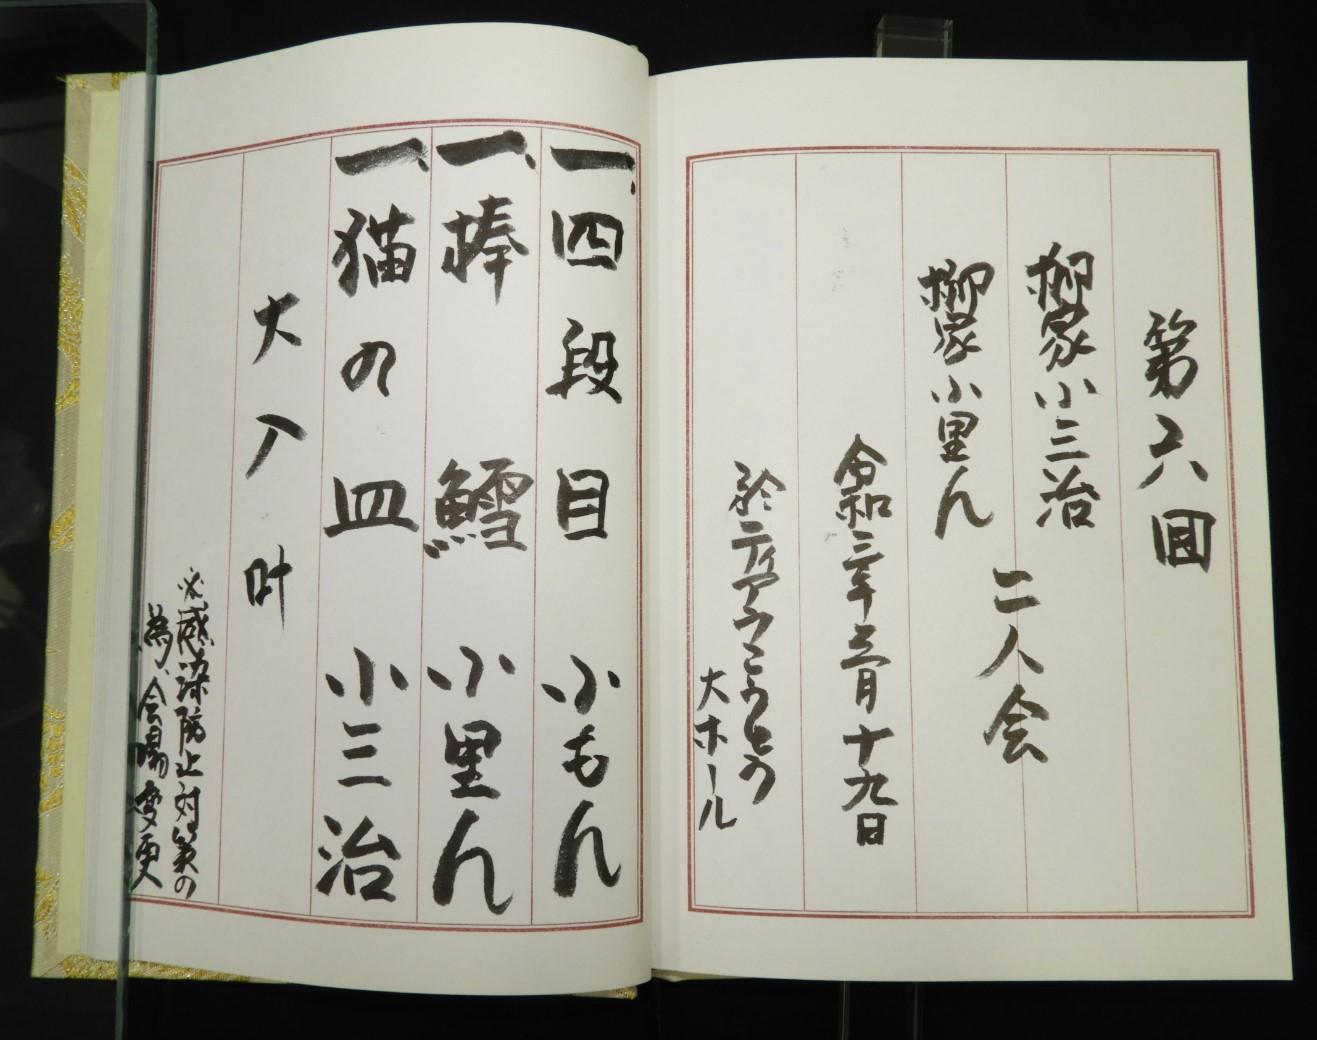 第六回
柳家小三治
柳家小里ん
二人会
令和三年三月十九日
於ティアラこうとう
大ホール
一、四段目 小もん
一、棒鱈 小里ん
一、猫の皿 小三治
大入叶
※感染防止対策の
為、会場変更